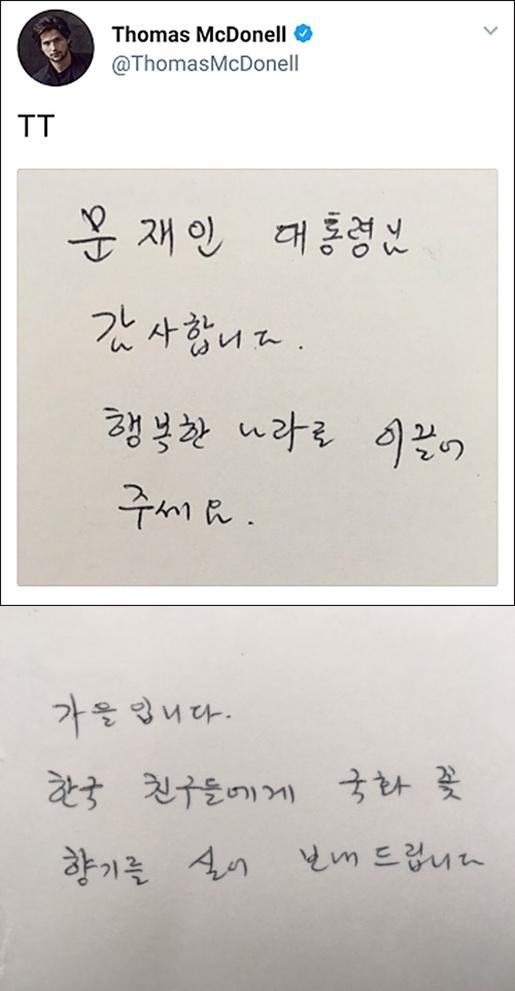 Thomas McDonell
@ThomasMcDonell
TT
문재인 대통령님
감사합니다.
행복한 나라로 이끌어
주세요.
가을입니다.
한국 친구들에게 국화 꽃
향기를 실어 보내드립니다